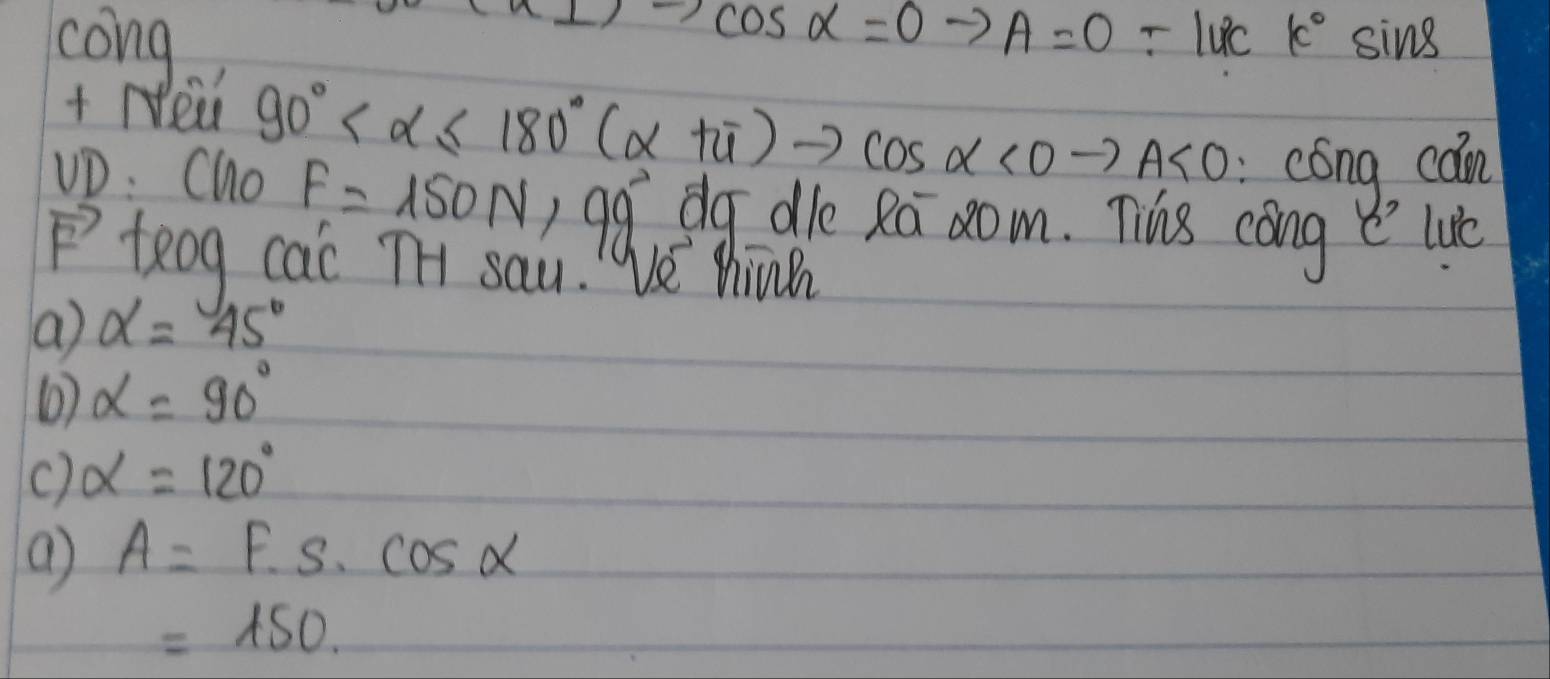 cos α = 0 → A = 0 ÷ lực k° sing
công
+ Nếu 90° < α ≤ 180° (α tù) → cos α < 0 → A < 0 : công cản
VD : Cho F = 150N, qg đg d/c là 20m. Tính công c̉ lực
F→ trog các TH sau. Vẽ hình
a) α = 45°
b) α = 90°
c) α = 120°
a) A = F. s. cos α
= 150.